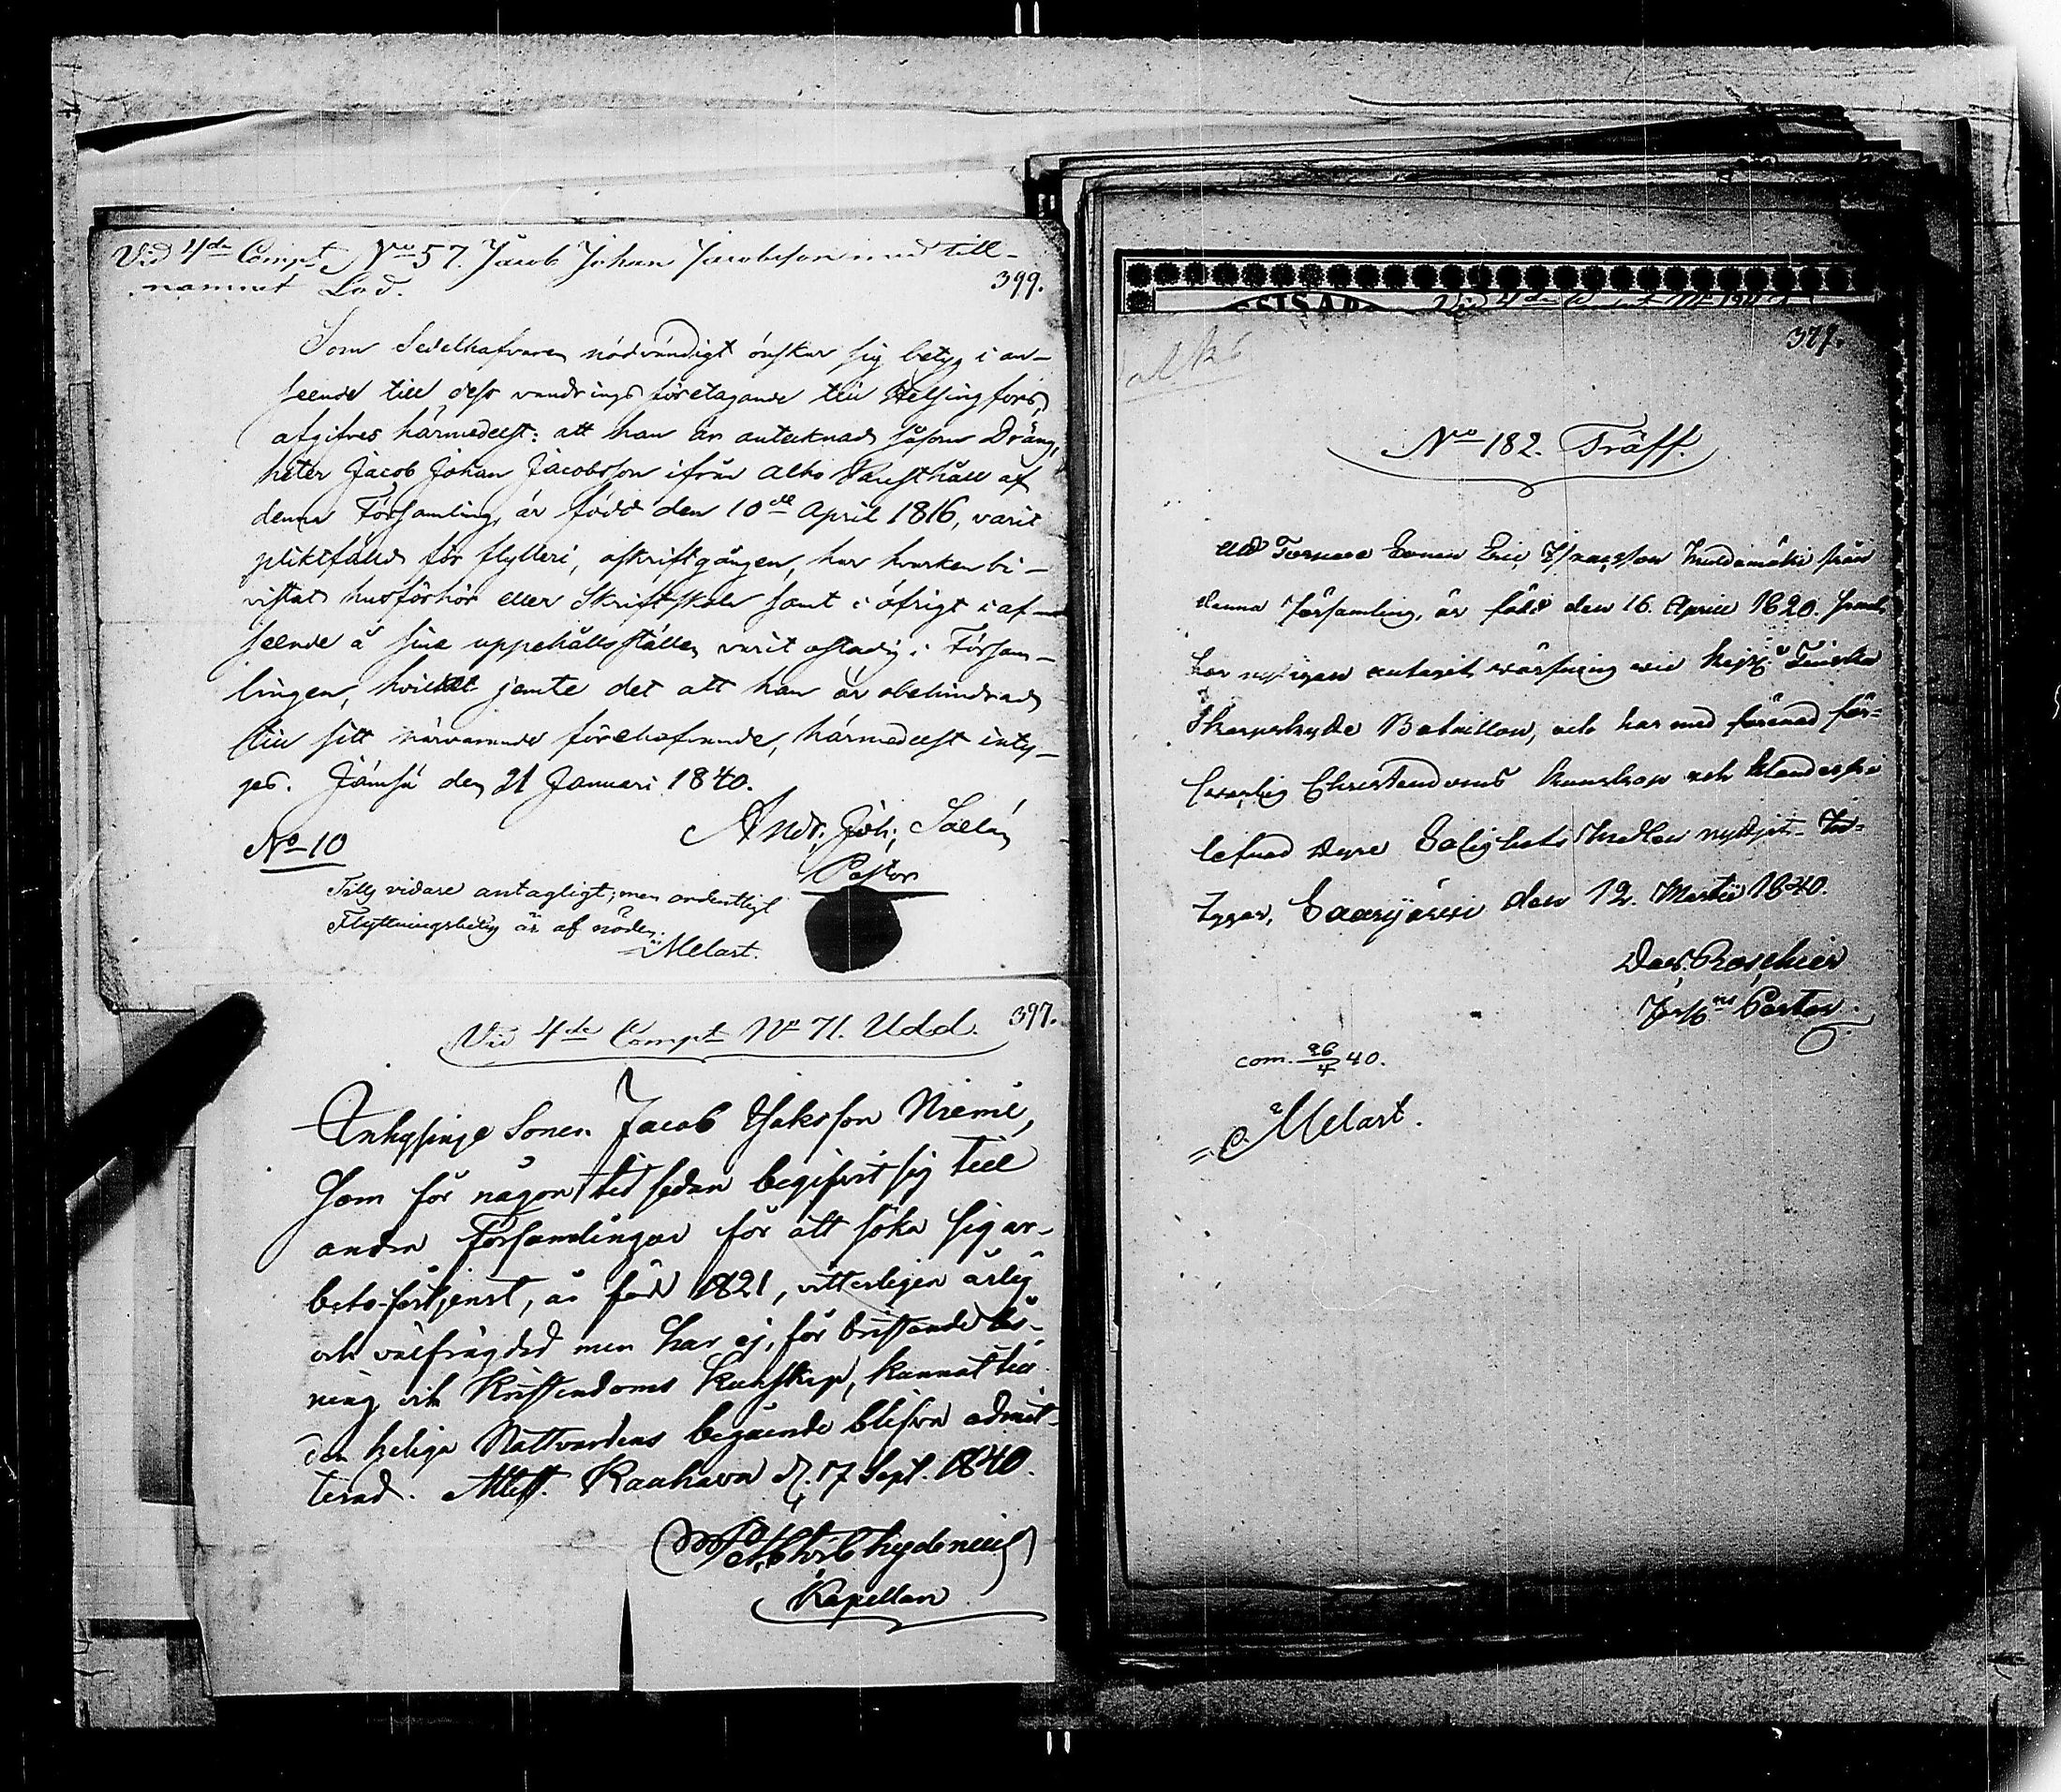 Vid 4de Compt No 57. Jacob Johan Jacobsson med till-
namnet Lod.
399.
Som Sedelhafvaren nödvändigt önskar sig betyg i an-
seende till dess vandrings företagande till Helsingfors,
afgifves härmedelst: att han är antecknad såsom Dräng,
heter Jacob Johan Jacobsson ifrån Alho Rusthåll af
denna Församling, är född den 10de April 1816, varit
pliktfälld för fylleri, oskriftgången, har hvarken bi-
vistat husförhör eller Skriftskola samt i öfrigt i af-
seende å sina uppehållsställen varit ostadig i Försam-
lingen, hvilket jemte det att han är obehindrad
till sitt närvarande förehafvande, härmedelst inty-
gas. Jämsä den 21 Januari 1840.
Andr. Joh. Sallén
No 10
Pastor
Tills vidare antagligt; men ordentligt
Flyttningsbetyg är af nöden.
Melart.
Vid 4de Compt No 71. Udd.
397.
Inhysinge Sonen Jacob Isaksson Niemi,
som för någon tid sedan begifvit sig till
andra Församlingar för att söka sig ar-
bets-förtjenst, är född 1821, vitterligen ärlig
och välfrägdad men har ej, för bristande läs-
ning och Kristendoms Kunskap, kunnat till
den heliga Nattvardens begående blifva admit-
terad. Attest. Kauhava d. 17 Sept. 1840.
Hydenius
Kapellan
Vid 4de
379.
No 182. Träff.
Att Torpare Sonen Eric Isaacsson Muldamäki från
denna församling, är född den 16. April 1820. samt
har nyligen antagit värfning vid Kejs. Finska
Skarpskytte Bataillon, och har med förenad för-
svarlig Christendoms kunskap och klanderfri
lefnad dyra Salighets Medlen nyttjat. In-
tygar, Saarijärvi den 12. Martii 1840.
Dav. Roschier
Förs:ns Pastor.
com. 26/4 40.
Melart.